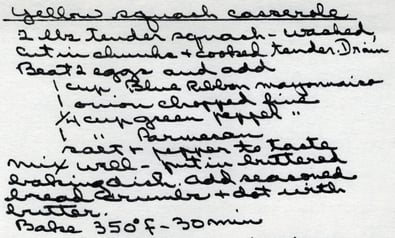 Yellow squash casserole
2 lbs tender squash - washed,
cut in chunks + cooked tender. Drain
Beat 2 eggs and add
1 cup Blue Ribbon mayonnaise
1 onion chopped fine
1/4 cup green pepper "
1 " Parmesan
salt + pepper to taste
mix well - put in buttered
baking dish. Add seasoned
bread crumbs + dot with
butter.
Bake 350°f - 30 min